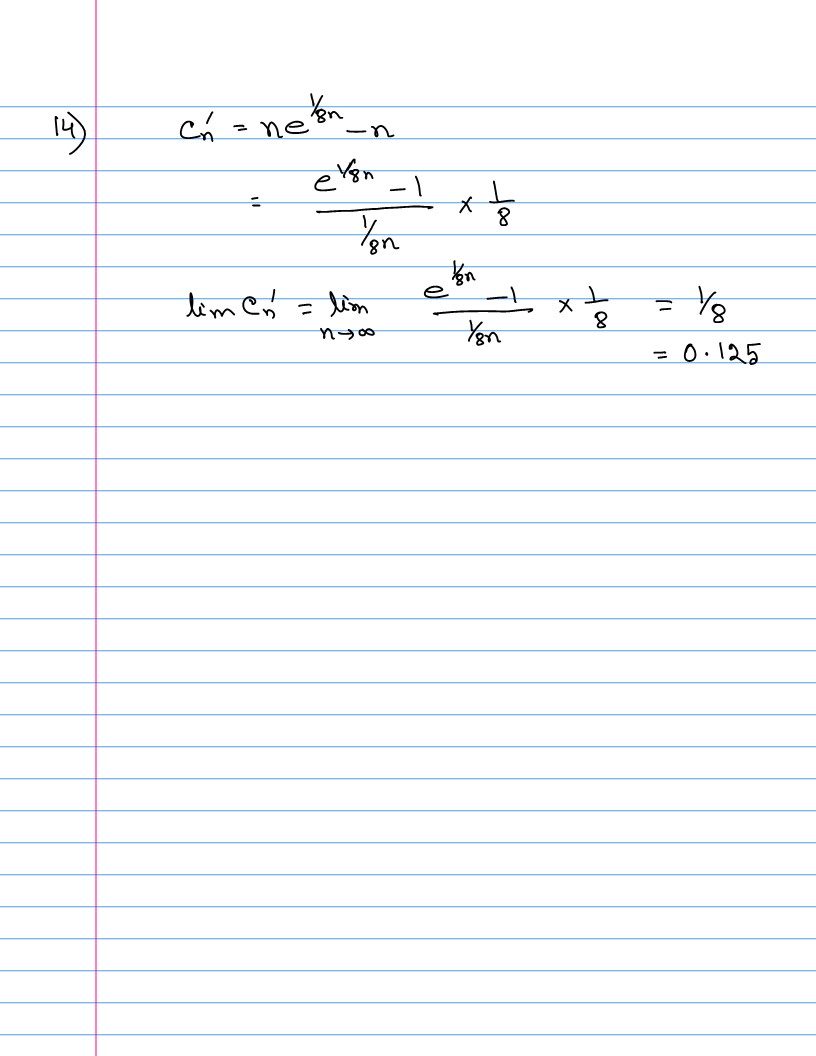 14) Cn' = ne^{1/8n} - n
= \frac{e^{1/8n} - 1}{1/8n} × \frac{1}{8}
lim Cn' = lim_{n→∞} \frac{e^{1/8n} - 1}{1/8n} × \frac{1}{8} = 1/8
= 0.125